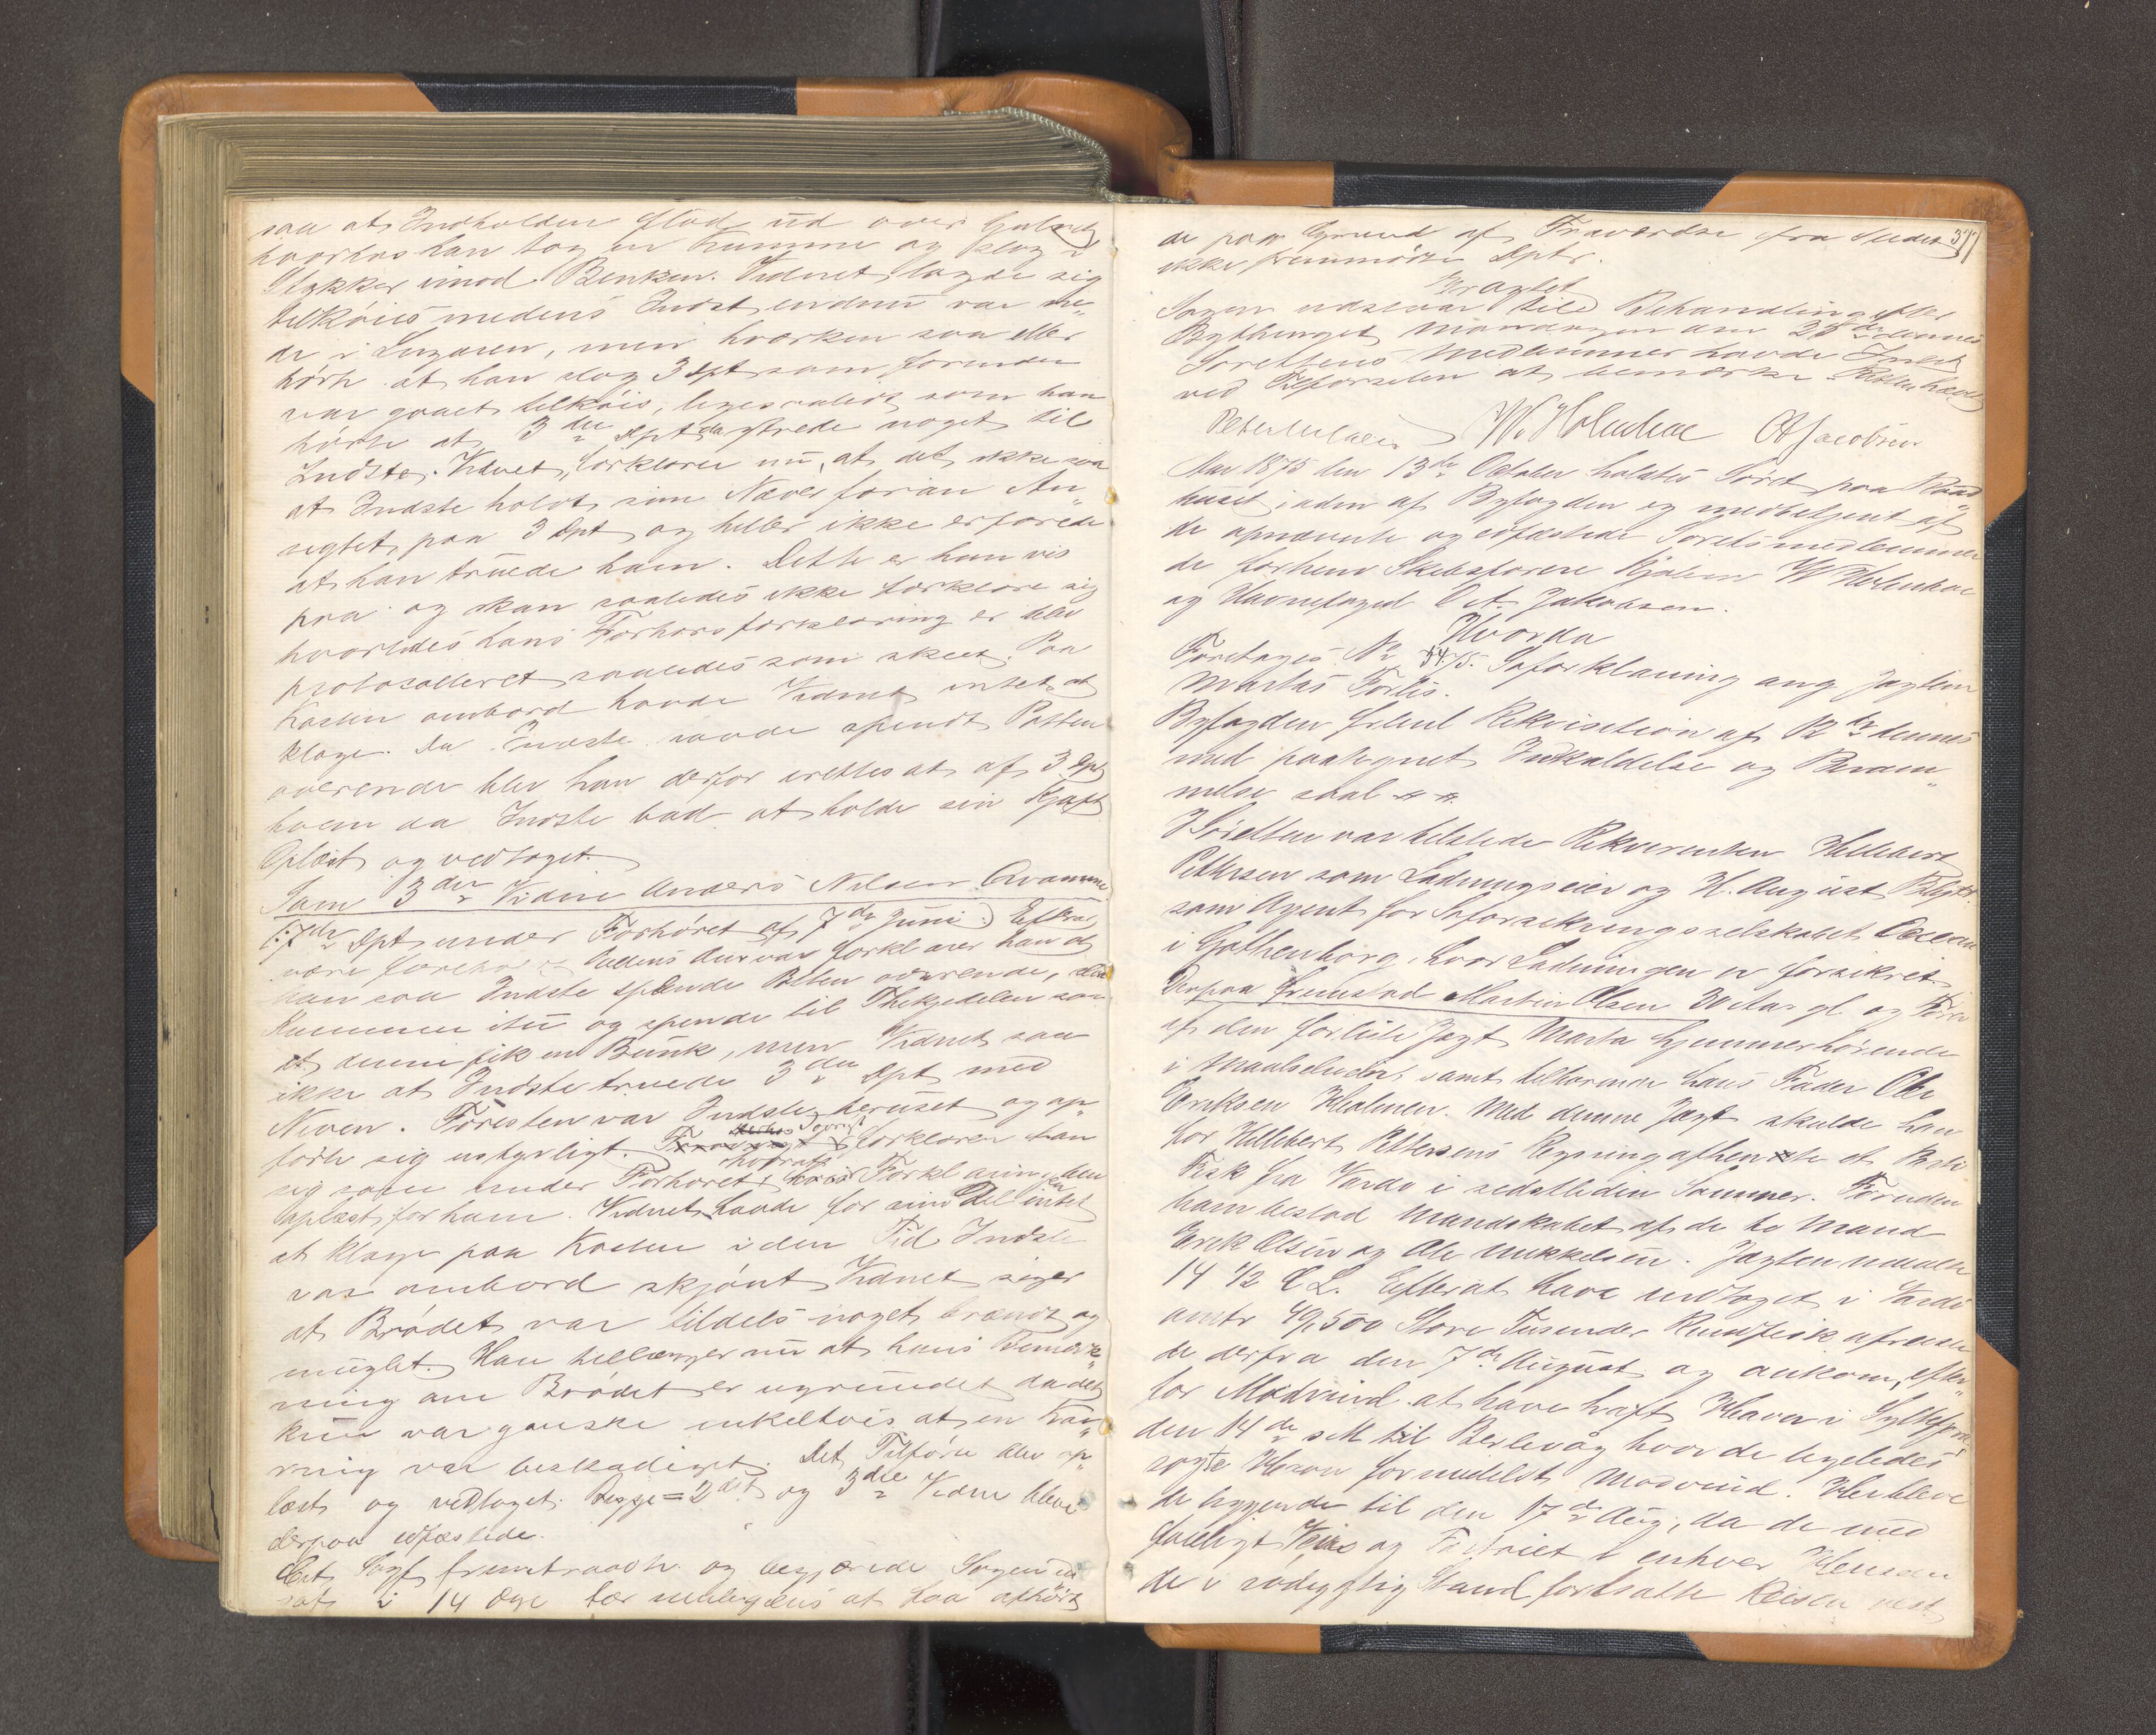 saa at Indholden flød ud over Gulvet
hvorhos han tog en Kumme og slog i
Stykker imod Benken. Vidnet lagde sig
tilkøies medens Indst endnu var ne„
de i Lugaren, men hverken saa eller
hørte at han slog 3 Dpt som forinden
var gaaet tilkøis, ligesaalidt som han
hørte at 3die Dpt da ytrede noget til
Indste. Vidnet forklarer nu, at det ikke saa
at Indste holdt sine Næver foran An„
sigtet paa 3 Dpt og heller ikke erfarede
at han truede ham. Dette er han vis
paa og kan saaledes ikke forklare sig
hvorledes hans Forhørsforklaring er blev
protocolleret saaledes som skeet. Paa
Kosten ombord havde Vidnet intet at
klage. Da Indste havde spendt Potten
overende blev han derfor irettesat af 3 Dpt
hvem da Indste bad at holde sin Kjæft
Oplæst og vedtaget.
Som 3die Vidne Anders Nilsen Qvamme
(:7de Dpt under Forhøret af 7de Juni:) Efter
være foreholdt Edens Ansvar forklarer han at
han saa Indste spænde Potten overende, slaa
Kummen itu og spende til Thekjedelen saa
at denne fik en Bunk, men Vidnet saa
ikke at Indste truede 3die Dpt med
Næven. Foresten var Indste beruset og op„
førte sig ustyrligt. Iøvrigt forklarer han
sig som under Forhøret hvorefter Forklaringen den
oplæst for ham. Vidnet havde for sin Del intet
at klage paa Kosten i den Tid Indste
var ombord skjønt Vidnet siger
at Brødet var tildels noget brændt og
muglet. Han tillægger nu at hans Bemærk„
ning om Brødet er ugrundet da det
kun var ganske enkeltvis at en Kav„
ring var beskadiget. Det Tilførte blev op„
læst og vedtaget. Begge = 2det og 3die Vidne bleve
derpaa edfæstede.
Act Sagf fremtraadte og begjærede Sagen ud
sat i 14 Dage for muligens at faa afhørt
de paa Grund af Fraværdse fra Stedet 371
ikke fremmødte Dptr.
Eragtet
Sagen udsættes til Behandling efter
Bythinget Mandagen den 25de dennes
Sørettens Medlemmer havde Intet
ved Tilførselen at bemærke. Retten hævet
W. Holmboe O A Jacobsen
Aar 1875 den 13de October holdtes Søret paa Raad„
huset i aden af Byfogden og medbetjent af
de opnævnte og edfæstede Søretsmedlemmer
de forhenv Skibsførere Kjøbm W Holmboe
og Havnefoged O A Jakobsen.
Hvorda
Foretoges No 34/75. Søforklaring ang Jagten
Martas Forlis.
Byfogden freml Rekvisition af 12de dennes
med paategnet Indkaldelse og Beram„
melse saal # #.
I Søretten var tilstede Rekvirenten Hellebert
Pettersen som Ladningseier og H. August
som Agent for Søforsikringsselskabet Ocean
i Gothenborg, hvor Ladningen er forsikret.
Derpaa fremstod Martin Olsen 20 Aar gl og Fører
af den forliste Jagt Marta hjemmehørende
i Maalselvden samt tilhørende hans Fader Ole
Eriksen Holmen. Med denne Jagt skulde han
for Hellebert Pettersens Regning afhente et Parti
Fisk fra Vardø i sidstleden Sommer. Foruden
ham bestod Mandskabet af de to Mand
Erik Olsen og Ole Mikkelsen. Jagten maalte
14 1/2 C L. Efterat have indtaget i Vardø
omtr 40,500 Store Tusender Rundfisk afreiste
de derfra den 7de August og ankom, efter
for Modvind at have havt Havn i Syltefjord
den 14de s M til Berlevåg hvor de ligeledes
søgte Havn formedelst Modvind. Her bleve
de liggende til den 17de Aug, da de med
føieligt Veir og Fartøiet i enhver Henseen
de i sødygtig Stand fortsatte Reisen vest